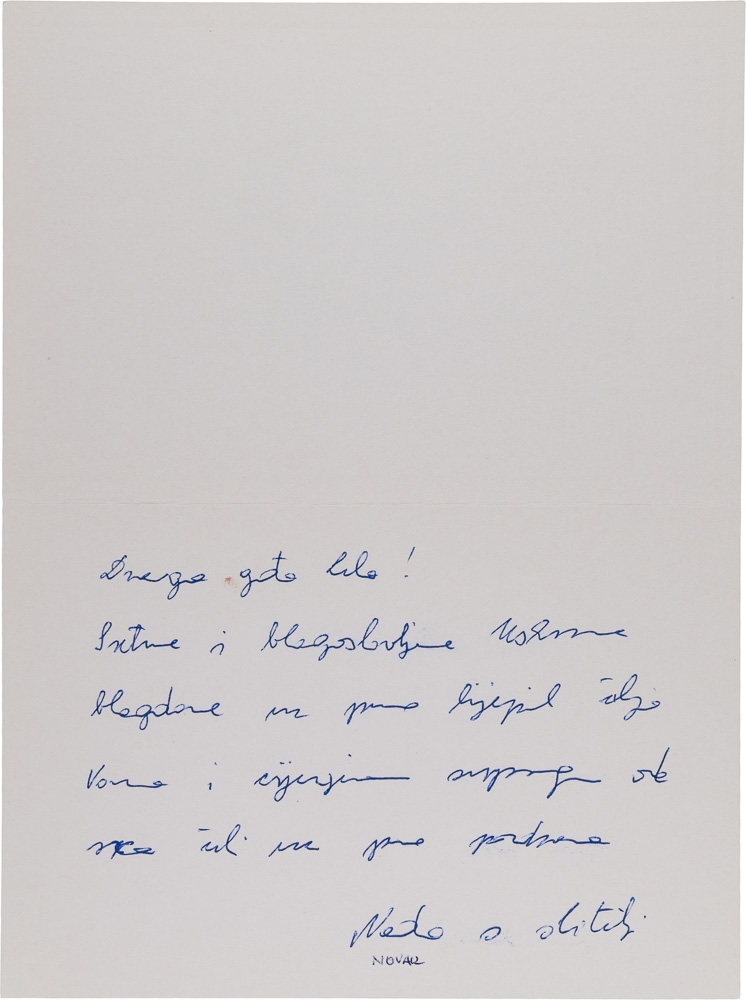 Draga gđo Lela!
Sretne i blagoslovljene Uskrsne
blagdane uz puno lijepih želja
Vama i cijenjenom suprugu od
srca želi uz puno pozdrava
Nada s obitelji
NOVAK